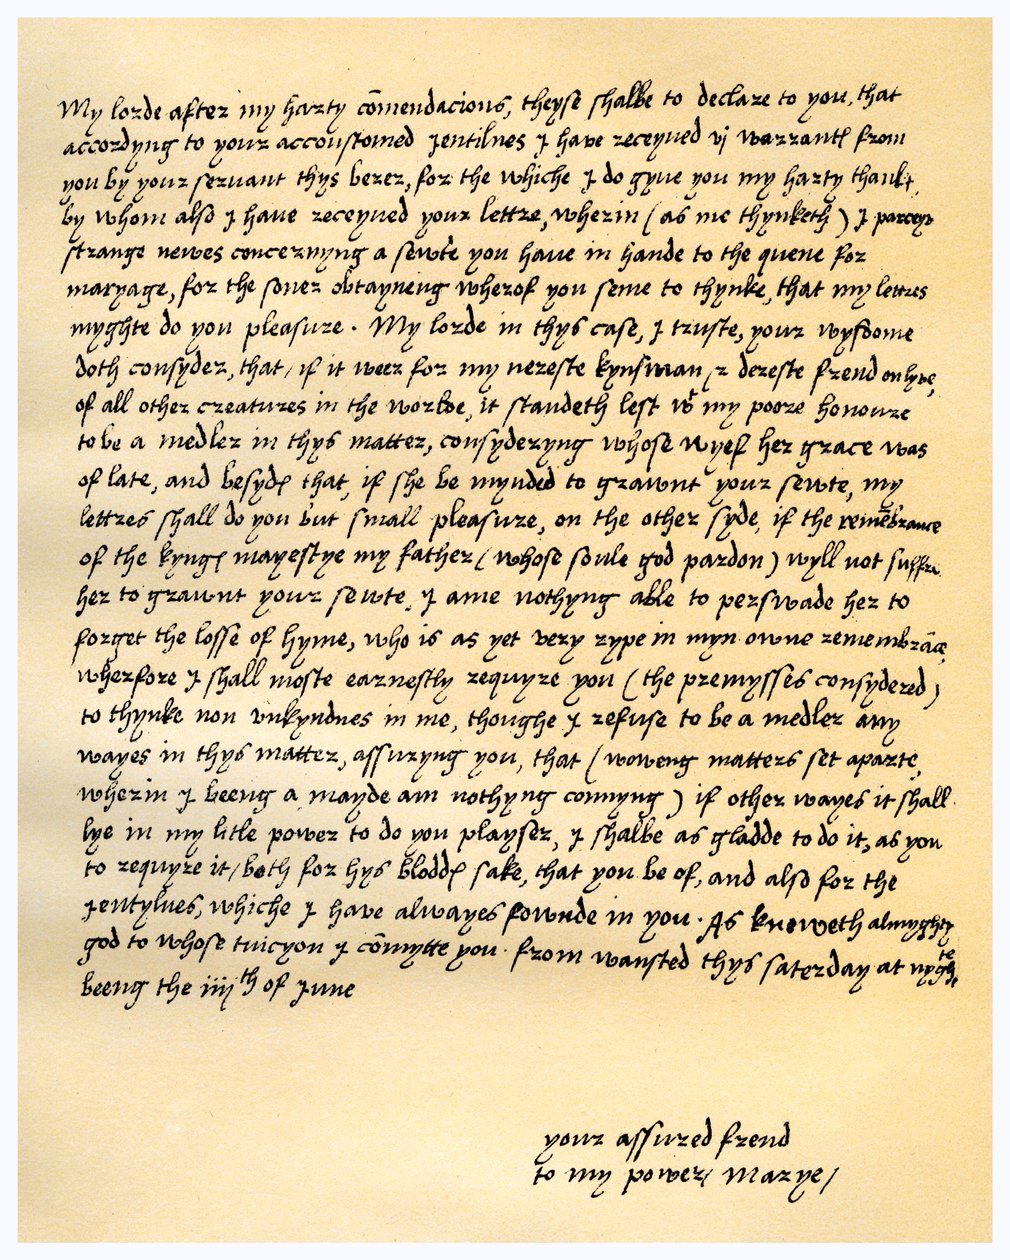 My lorde after my harty cōmendacions, theyse shalbe to declare to you, that
accordyng to your accoustomed jentilnes I have receyued vj warrantꝭ from
you by your servant thys berer, for the whiche I do gyue you my harty thankꝭ,
by whom also I haue receyued your lettre, wherin (as me thynketh) I parceyv
strange newes concernyng a sewte you haue in hande to the quene for
maryage, for the soner obtayneng wherof you seme to thynke, that my lettres
myghte do you pleasure. My lorde in thys case, I truste, your wysdome
doth consyder, that/ if it weer for my nereste kynsman & dereste frend on lyve,
of all other creatures in the worlde, it standeth lest wt my poore honoure
to be a medler in thys matter, consyderyng whose wyef her grace was
of late, and besydꝭ that, if she be mynded to grawnt your sewte, my
lettres shall do you but small pleasure, on the other syde, if the remēbrance
of the kyngꝭ mayestye my father (whose soule god pardon) wyll not suffre
her to grawnt your sewte, I ame nothyng able to perswade her to
forget the losse of hyme, who is as yet very rype in myn owne remembrāce,
wherfore I shall moste earnestly requyre you (the premysses consydered)
to thynke non vnkyndnes in me, thoughe I refuse to be a medler any
wayes in thys matter, assuryng you, that (woweng matters set aparte,
wherin I beeng a mayde am nothyng connyng) if other wayes it shall
lye in my litle power to do you playser, I shalbe as gladde to do it, as you
to requyre it/ both for hys bloddꝭ sake, that you be of, and also for the
jentylnes, whiche I have alwayes fownde in you. As knoweth almyghty
god to whose tuicyon I cōmytte you. from wansted thys saterday at nyghte
beeng the iiijth of June
your assured frend
to my power/ Marye/